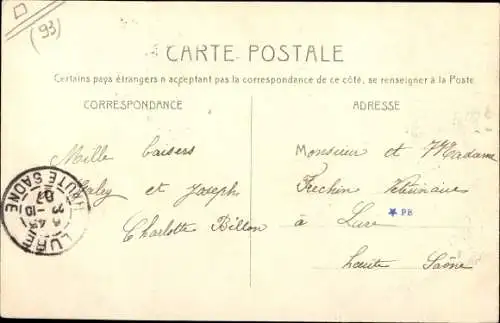 (93)
CARTE POSTALE
Certains pays étrangers n acceptant pas la correspondance de ce côté, se renseigner à la Poste
CORRESPONDANCE
ADRESSE
Mille baisers
et Joseph
Charlotte Billon
Monsieur et Madame
Frechin Vétérinaire
à Lure
Haute Saône
PB
HAUTE SAONE